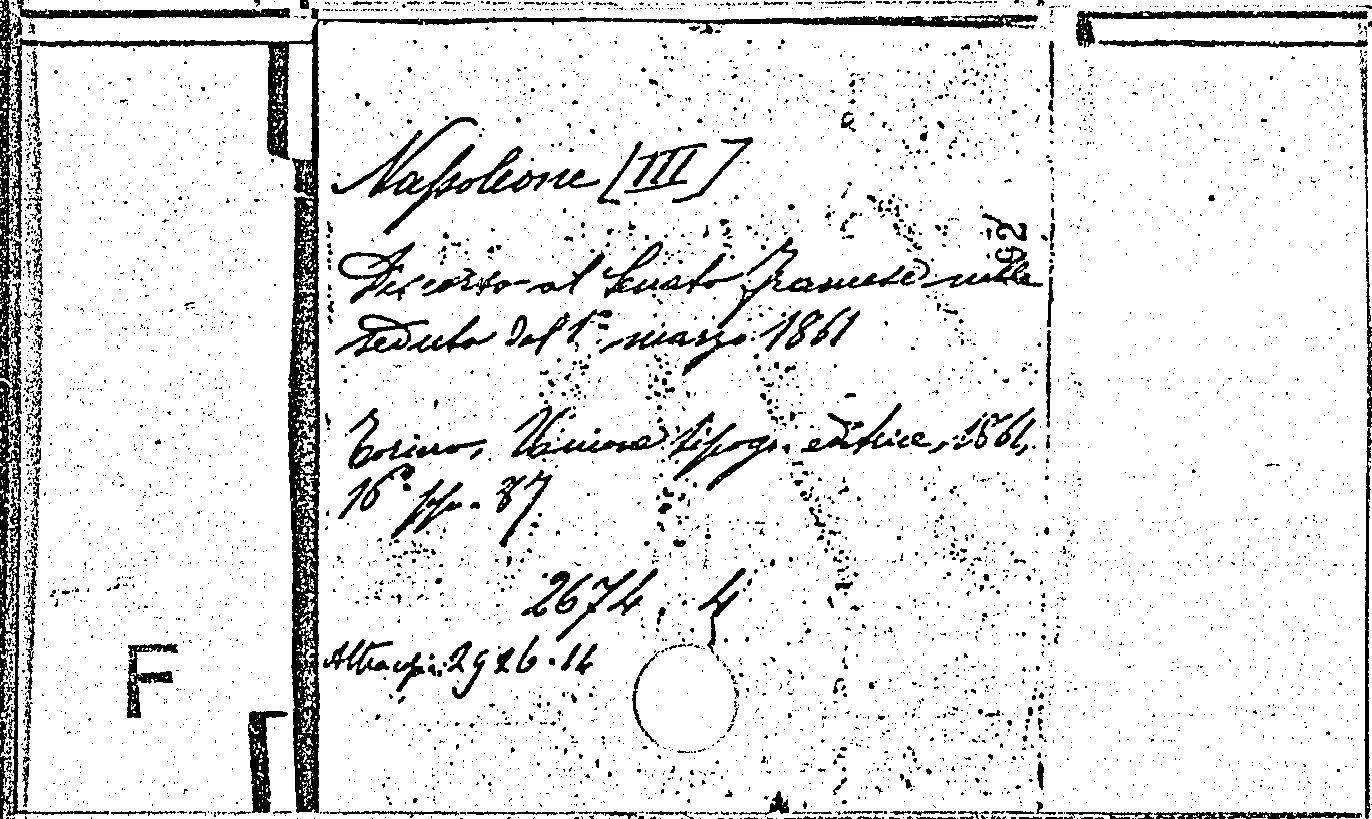 Napoleone [III]
Discorso al Senato francese nella
seduta del 1º marzo 1861
Torino, Unione tipogr. editrice, 1861,
16º pp. 87
2674. 4
Altra copia 2926.14
62
F